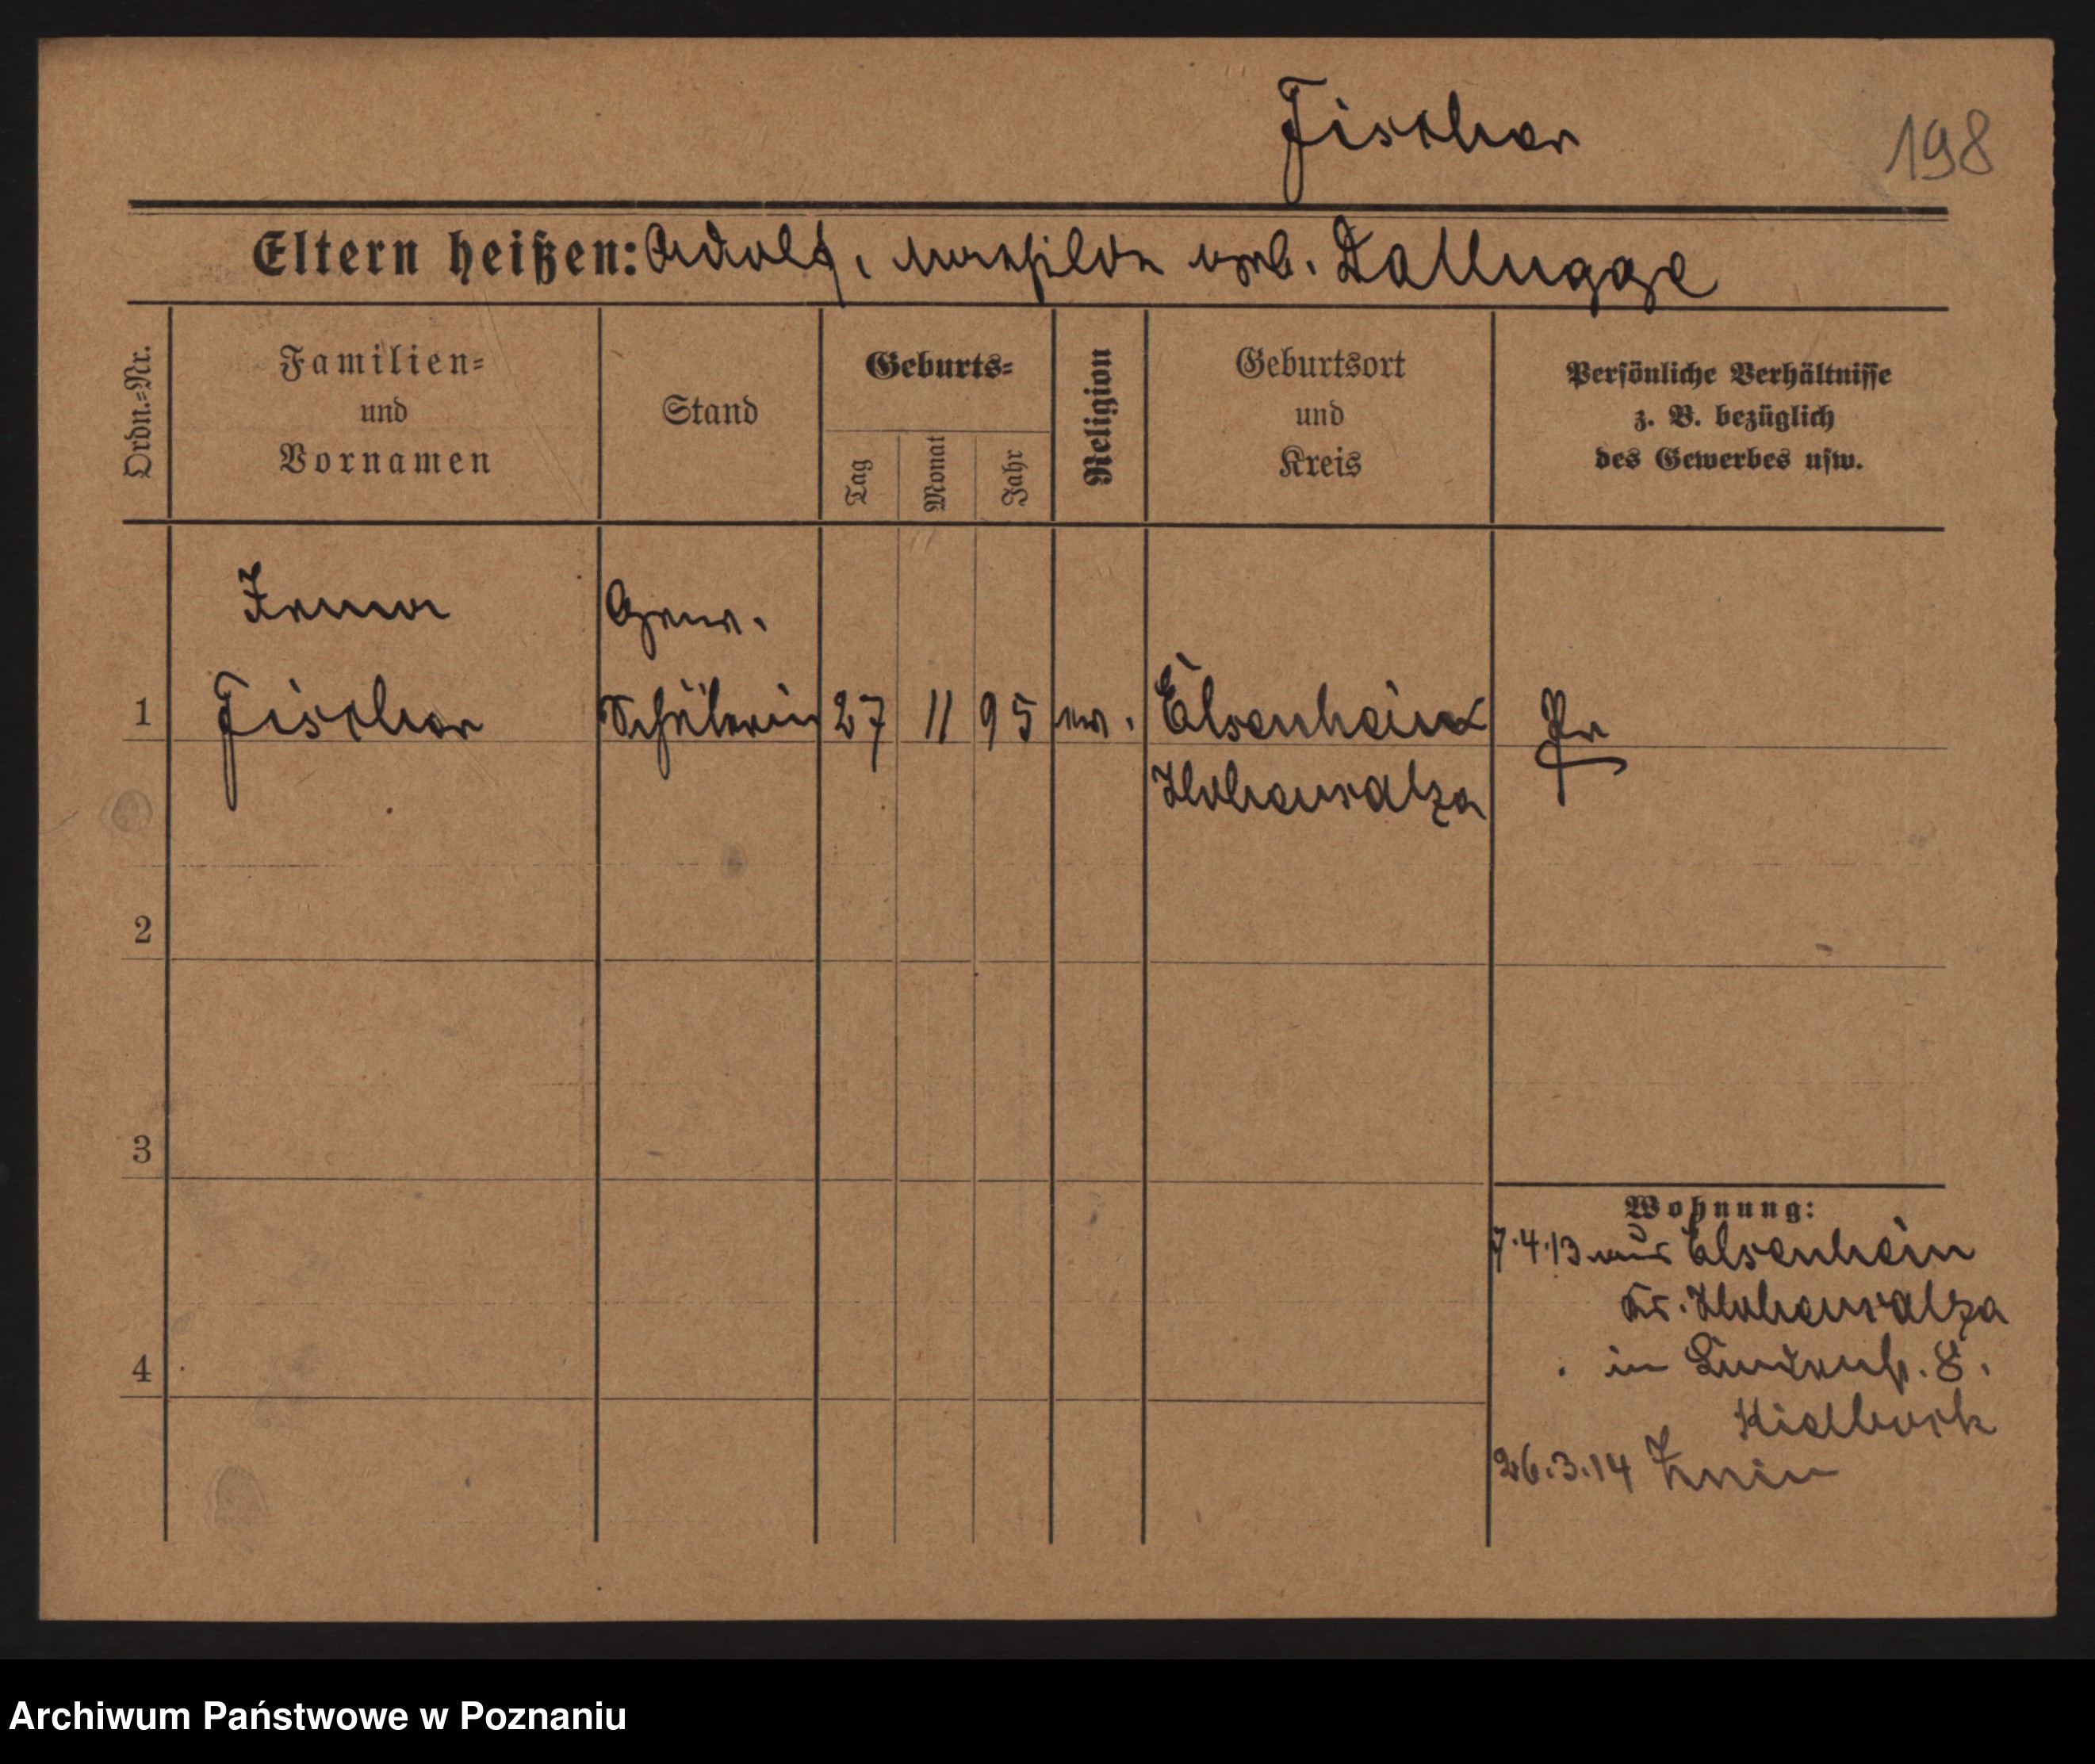 Fischer
198
Eltern heißen: Adolf, Mathilde geb. Dallügge
Ordn.-Nr.
Familien-
und
Vornamen
Stand
Geburts-
Tag
Monat
Jahr
Religion
Geburtsort
und
Kreis
Persönliche Verhältnisse
z. B. bezüglich
des Gewerbes usw.
Irma
Gew.
1 Fischer Schülerin 27 11 95 ev. Elsenheim Pr
Hohensalza
2
3
4
Wohnung:
7.4.13 aus Elsenheim
Kr. Hohensalza
in Lindenst. 8.
26.3.14 Znin
Archiwum Państwowe w Poznaniu